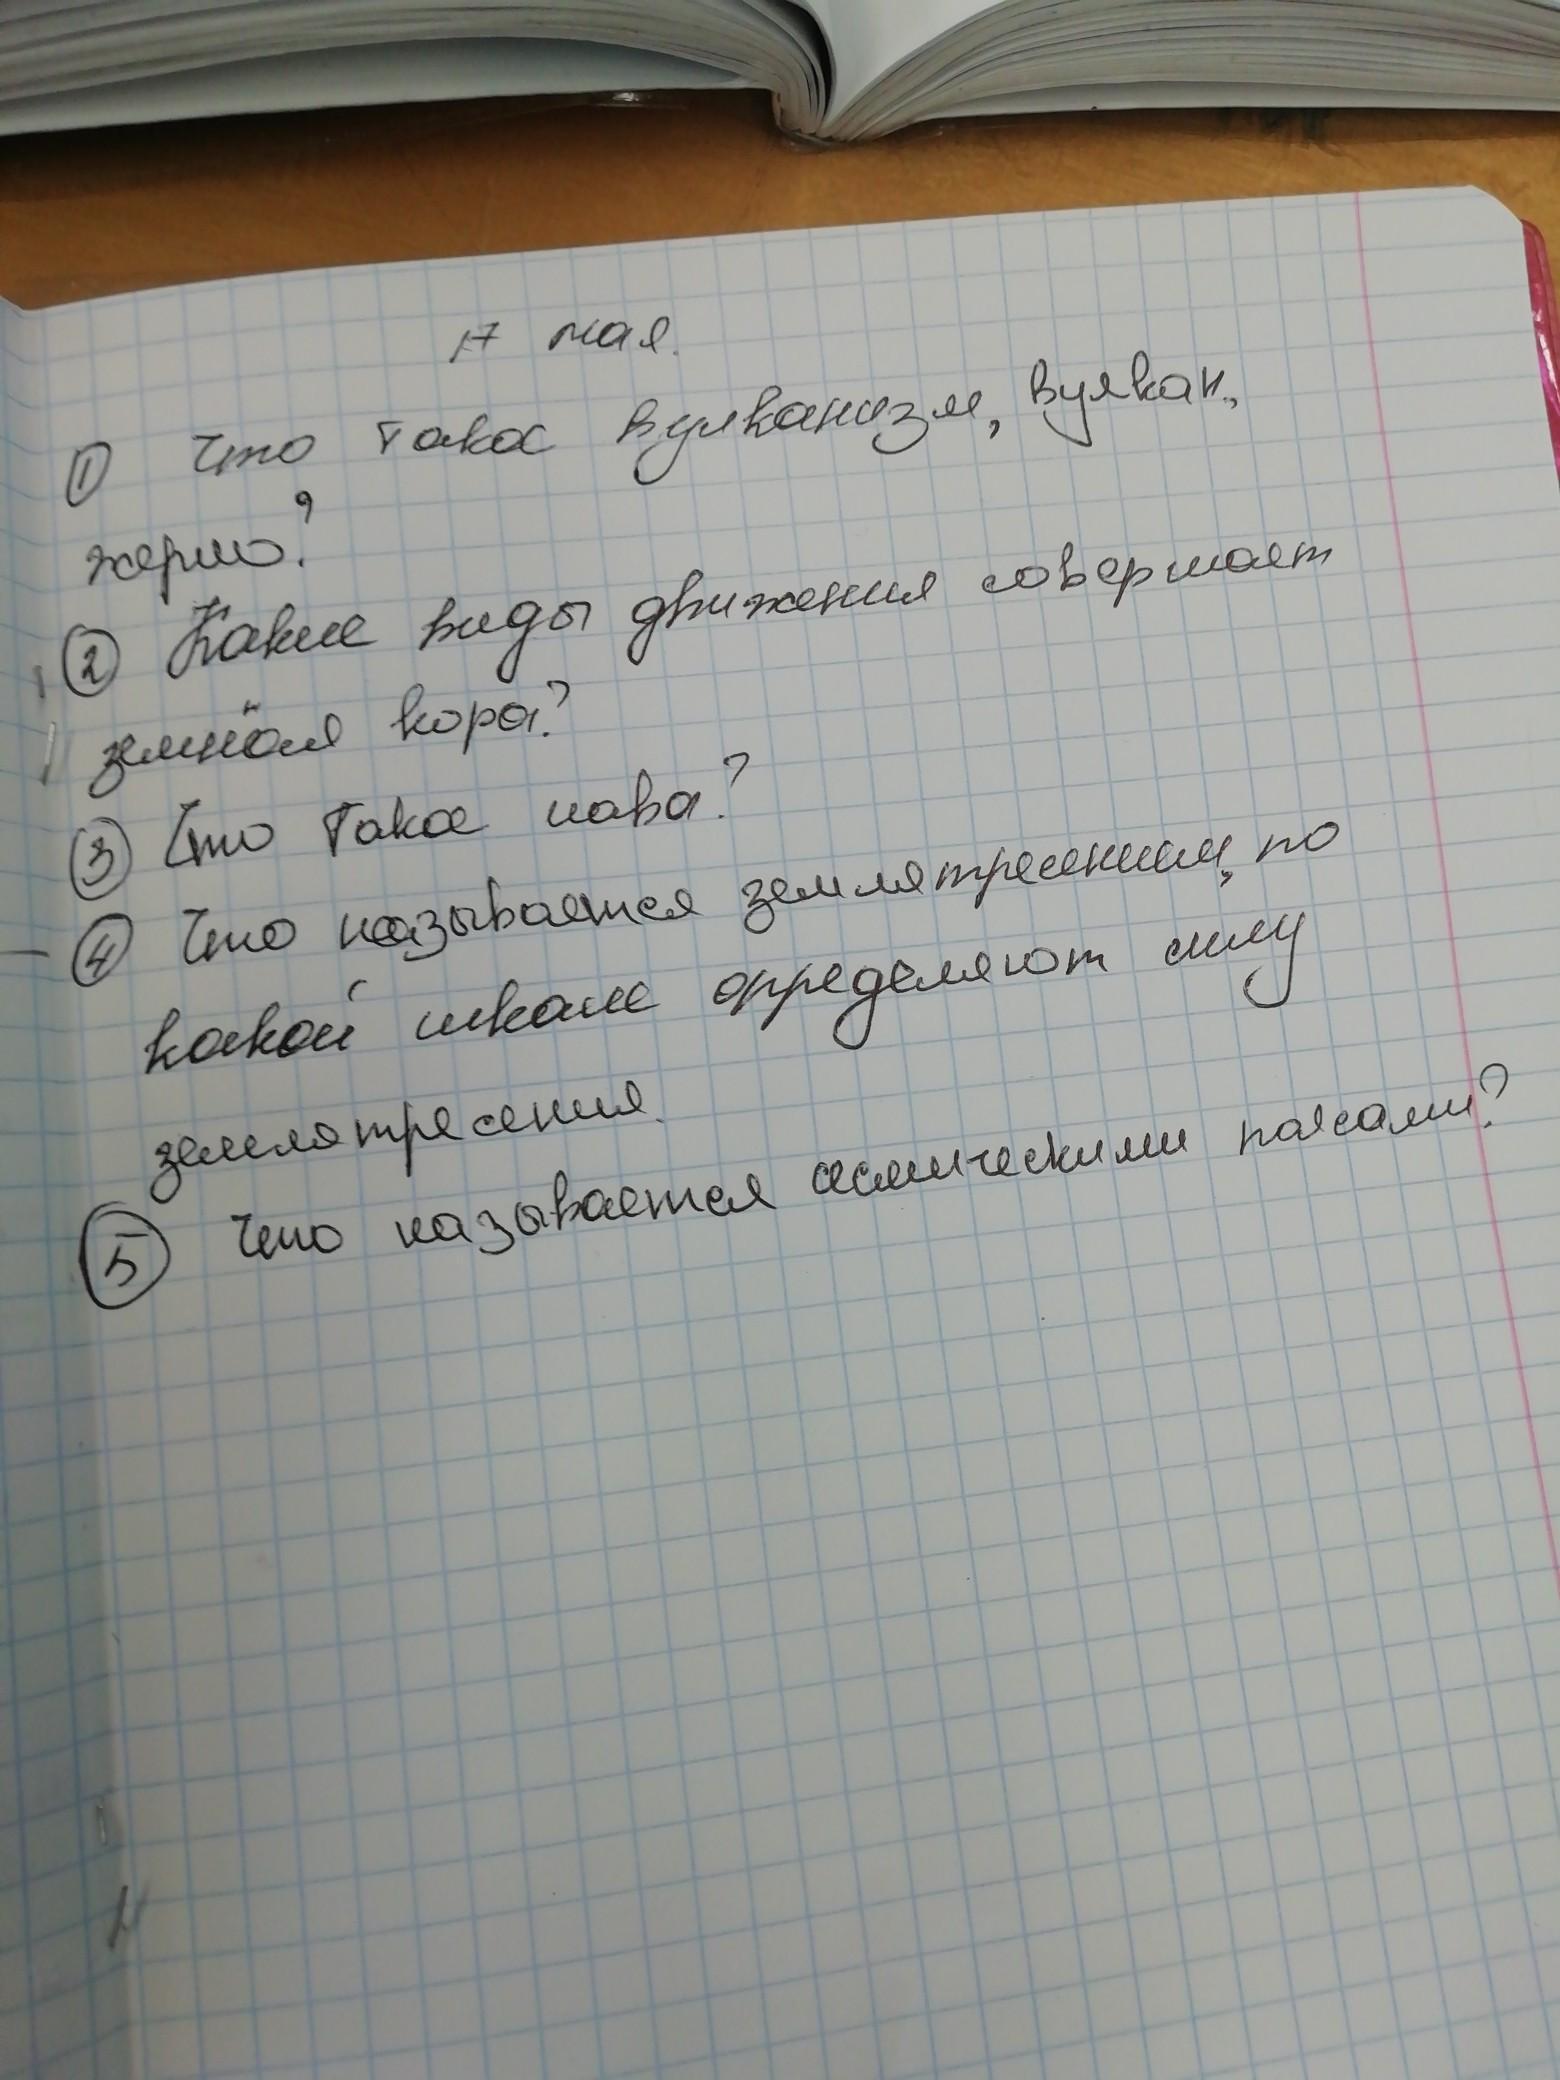 17 мая.
① Что такое вулканизм, вулкан,
жерло?
② Какие виды движения совершает
земная кора?
③ Что такое лава?
④ Что называется землятресением, по
какой шкале определяют силу
землятресения.
⑤ Что называется сесмическими поясами?